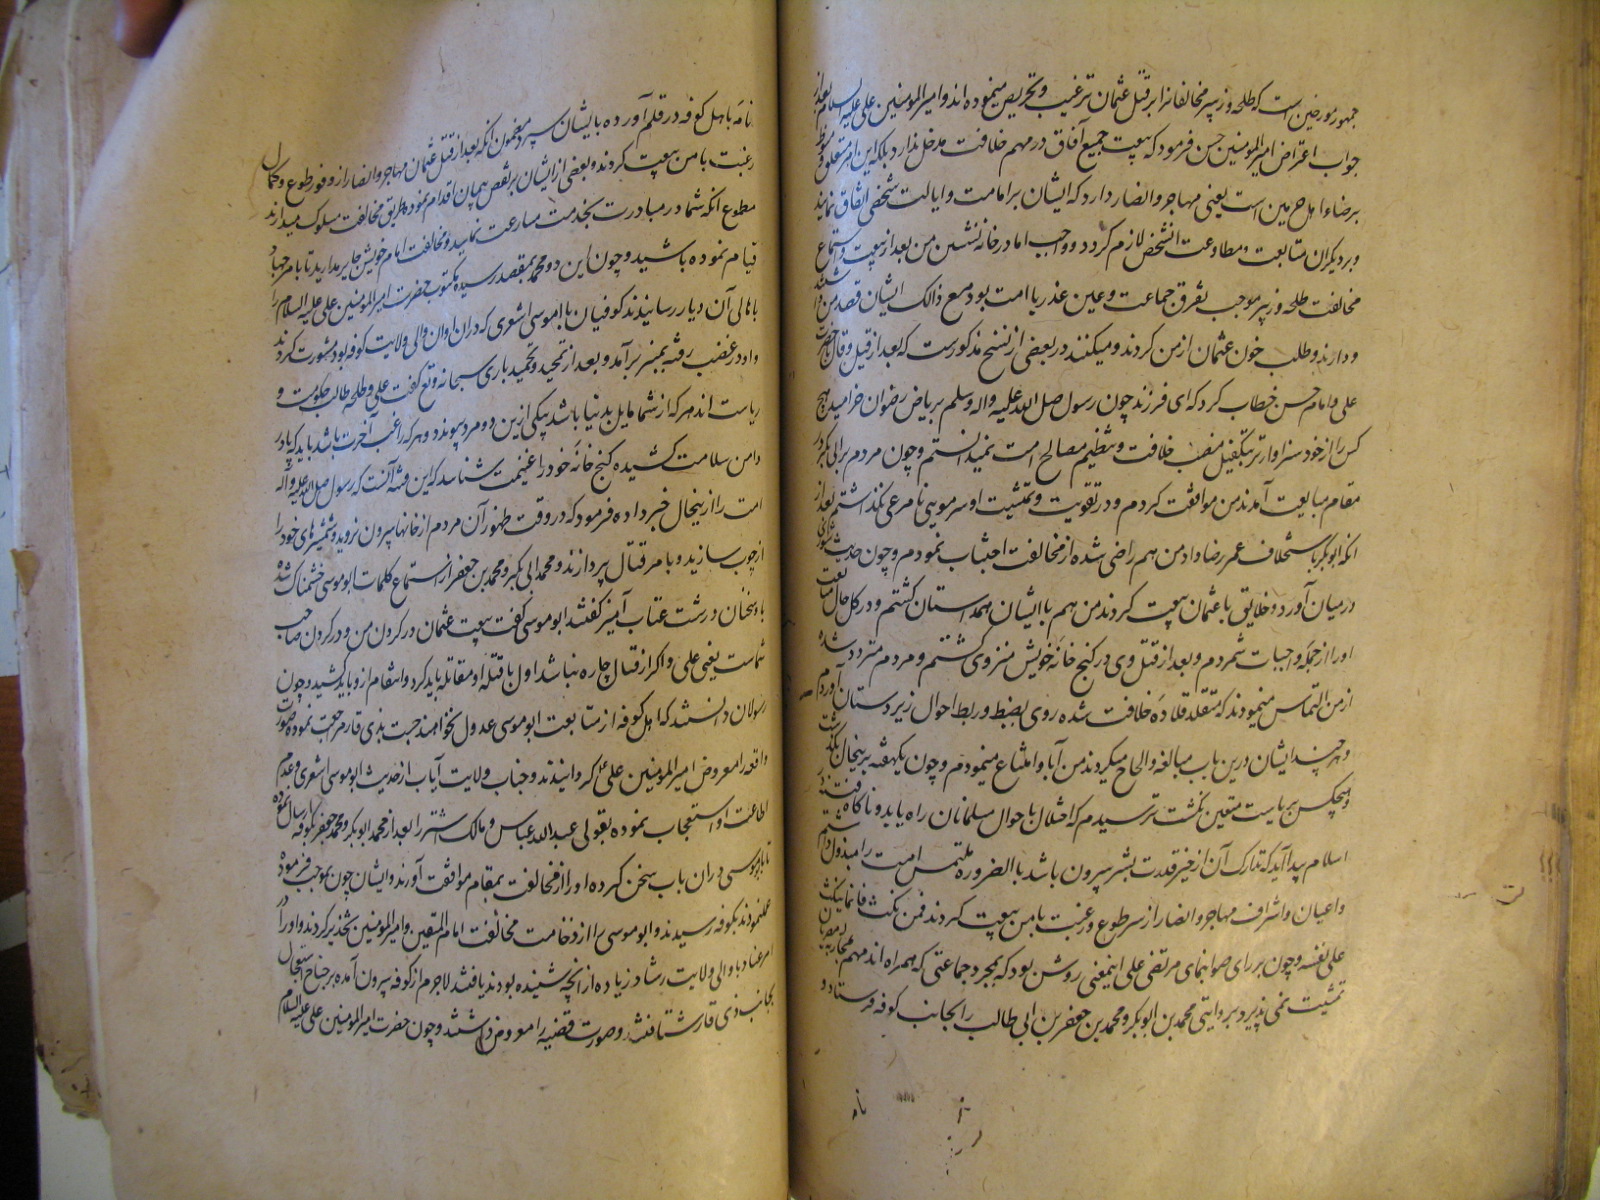 جمهور مورخین است که طلحه و زبیر مخالفانرا بر قتل عثمان ترغیب و تحریص مینموده اند و امیر المومنین علی علیه السلام بعد از
جواب اعتراض امیر المومنین حسن فرمود که بیعت جمیع آفاق در مهم خلافت مدخل ندارد بلکه این امر متعلق و منوط
برضاء اهل حرمین است یعنی مهاجر و انصار دارد که ایشان بر امامت و ایالت شخصی اتفاق نمایند
و بر دیگران متابعت و مطاوعت آنشخص لازم کردد و واجب اما در خانه نشستن من بعد از بیعت و استماع
مخالفت طلحه و زبیر موجب تفرق جماعت و عین عذر با امت بود مع ذالک ایشان قصد من
و دارند و طلب خون عثمان از من کردند و میکنند در بعضی از نسخ مذکورست که بعد از قیل و قال
علی و امام حسن خطاب کرد که ای فرزند چون رسول صل الله علیه و اله وسلم بریاض رضوان خرامید هیچ
کس را از خود سزاوارتر بتکفیل منصب خلافت و تنظیم مصالح امت نمیدانستم و چون مردم بر ابی بکر در
مقام مبایعت آمدند من موافقت کردم و در تقویت و تمشیت او سر مویی نامرعی نکذاشتم بعد از
انکه ابوبکر باستخلاف عمر رضا داد من هم راضی شده از مخالفت اجتناب نمودم و چون حدیث شوری
درمیان آورد و خلایق با عثمان بیعت کردند من هم با ایشان همداستان کشتم و در کل حال متابعت
او را از جمله واجبات شمردم و بعد از قتل وی در کنج خانه خویش منزوی کشتم و مردم متردد شده
از من التماس مینمودند که متقلد قلاده خلافت شده روی بضبط و ربط احوال زیردستان آوردم
و هر چند ایشان درین باب مبالغه و الحاح میکردند من آبا و امتناع مینمودم و چون یکهفته برینحال بکذشت
و هیچکس بریاست متعین نکشت ترسیدم که اختلال باحوال مسلمانان راه یابد و ناکاه
اسلام پیدا آید که تدارک آن از حیز قدرت بشر بیرون باشد بالضروره ملتمس امت را مبذول داشتم
و اعیان و اشراف مهاجر و انصار از سر طوع و رغبت با من بیعت کردند فمن نکث فانما ینکث
علی نفسه و چون بر رای صوابنمای مرتضی علی اینمعنی روشن بود که بمجرد جماعتی که همراه اند مهم
تمشیت نمی پذیرد بروایتی محمد بن ابوبکر و محمد بن جعفر بن ابی طالب را بجانب کوفه فرستاد و
نامه
نامه باهل کوفه در قلم آورده بایشان سپرد مضمون آنکه بعد از قتل عثمان مهاجر و انصار از وفور طوع و کمال
رغبت با من بیعت کردند و بعضی از ایشان بر نقض پیمان اقدام نموده طریق مخالفت مسلوک میدارند
مطوع انکه شما در مبادرت بخدمت مسارعت نمایید و مخالفت امام خویش جایز مدارید تا بامر جهاد
قیام نموده باشید و چون این دو محمد بمقصد رسیده مکتوب حضرت امیر المومنین علی علیه السلام را
باهالی آن دیار رسانیدند کوفیان با ابو موسی اشعری که دران اوان والی ولایت کوفه بود مشورت کردند
و او در غضب رفته بمنبر برآمد و بعد از تمجید و تحمید باری سبحانه و تع گفت علی و طلحه طالب حکومت و
ریاست اند هر که از شما مایل بدنیا باشد بیکی ازین دو مرد پیوندد و هر که راغب آخرت باشد باید که پا در
دامن سلامت کشیده کنج خانه خود را غنیمت شناسد که این فتنه آنست که رسول صل الله علیه و آله
امت را ازینحال خبر داده فرمود که در وقت ظهور آن مردم از خانها بیرون نروید و شمشیرهای خود را
از چوب سازید و بامر قتال پردازند و محمد ابی بکر و محمد بن جعفر از استماع کلمات ابو موسی خشمناک شده
با او سخنان درشت عتاب آمیز گفتند ابو موسی گفت بیعت عثمان در کردن من و در کردن صاحب
شماست یعنی علی و اکر از قتال چاره نباشد اول با قتله او مقاتله باید کرد و انتقام از و باید کشید و چون
رسولان دانستند که اهل کوفه از متابعت ابو موسی عدول نخواهند جست بذی قار مراجعت نموده صورت
واقعه را معروض امیر المومنین علی کردانیدند و جناب ولایت آیاب از حدیث ابو موسی اشعری و عدم
اطاعت او استعجاب نموده بقولی عبد الله عباس و مالک اشتر را بعد از محمد ابوبکر و محمد جعفر بکوفه ارسال نموده
تا با ابو موسی دران باب سخن کرده او را از مخالفت بمقام موافقت آورند و ایشان چون بموجب فرموده
عمل نمودند بکوفه رسیدند و ابو موسی را از وخامت مخالفت امام المتقین و امیر المومنین تحذیر کردند و او را در
امر عناد با والی ولایت رشاد زیاده از انچه شنیده بودند یافتند لاجرم از کوفه بیرون آمده بر جناح استعجال
بجانب ذی قار شتافتند و صورت قضیه را معروض داشتند و چون حضرت امیر المومنین علی علیه السلام